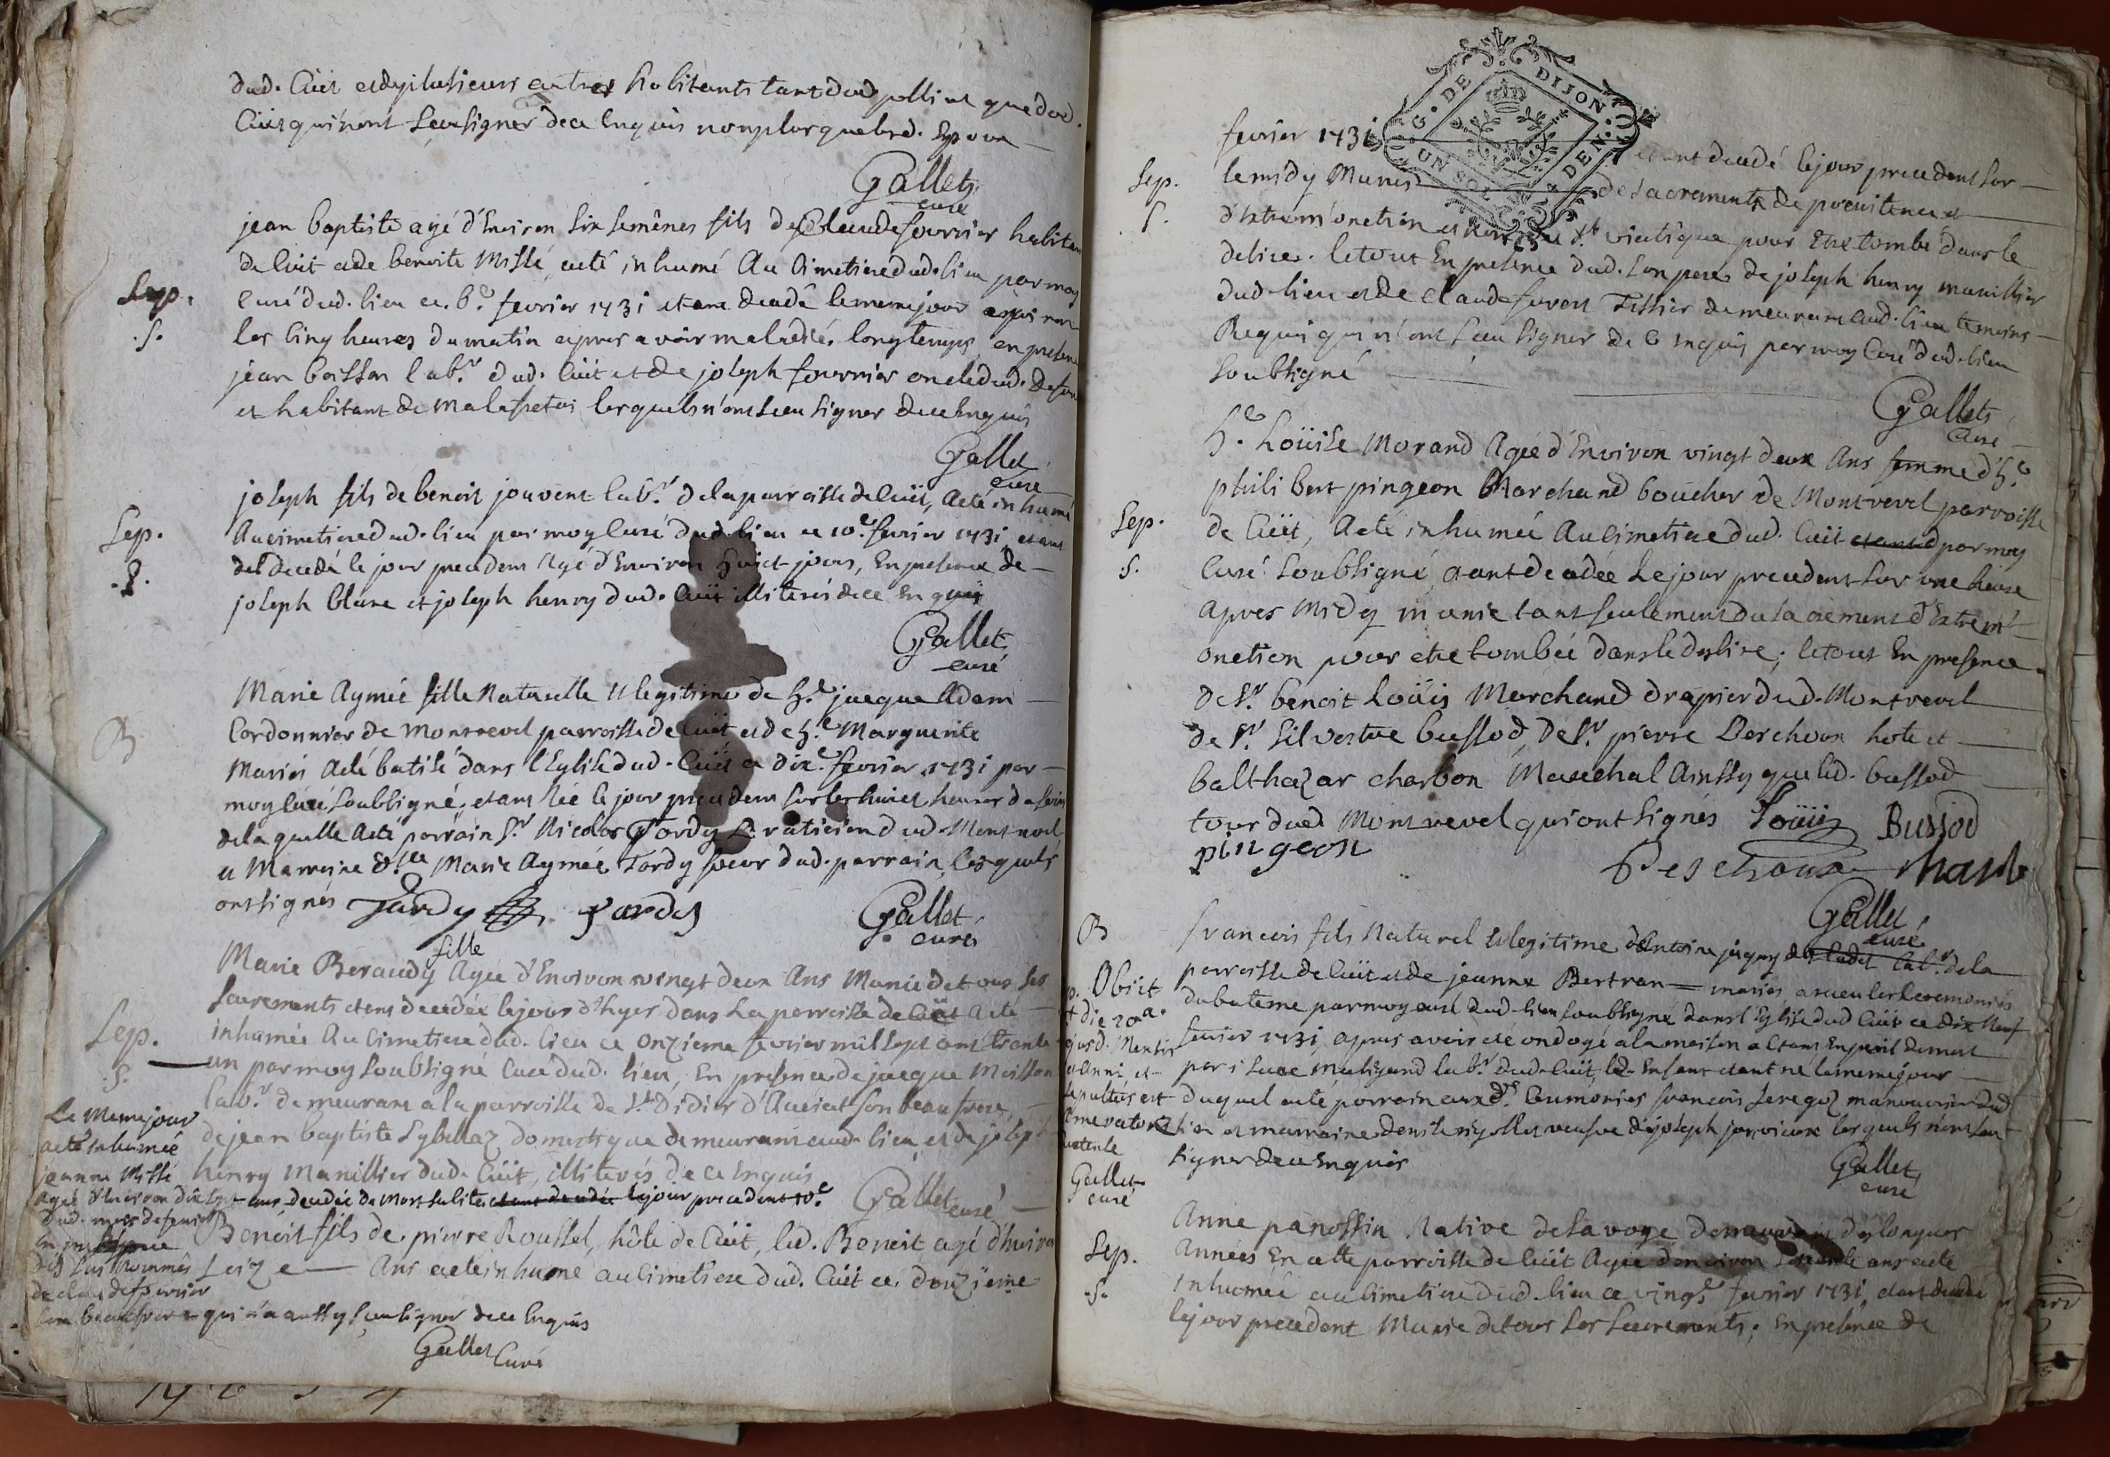 dud. Cüit et de plusieurs autres habitants tant dud. polliat que dud.
Cüit qui n'ont sceu signer de ce Enquis non plus que led.
Gallet
curé
jean baptiste agé d'Environ six semênes fils de Claude fourrier habitant
de Cüit et de benoite Missé, a eté inhumé Au Cimetiere dud. lieu par moy
Sep.
curé dud. lieu ce 6e fevrier 1731 etant decedé le meme jour environ
.S.
les cinq heures du matin apres avoir maladié longtemps, en presence
jean boisson labr. dud. Cüit et de joseph fournier oncle dud. defunt
et habitant de Malafretas lesquels n'ont sceu signer de ce Enquis
Gallet
curé
joseph fils de benoit jouvent labr. de la parroisse de Cüit, A eté inhumé
Sep.
Au cimetiere dud. lieu par moy Curé dud. lieu ce 10e fevrier 1731 etant
.S.
decedé le jour precedent Agé d'Environ huict jours, En presence de
joseph blanc et joseph henry dud. Cüit illiterés de ce Enquis
Gallet
curé
Marie Aymée fille Naturelle et legitime de h.e jacque Adam
B
Cordonnier de Montrevel parroisse de Cüit et de h.e Marguerite
Mariés A eté batisé dans l'Eglise dud. Cüit ce dixe fevrier 1731 par
moy Curé Soubsigné, etant née le jour precedent sur les huict heures du soir
de la quelle A eté parrain Sr Nicolas Tardy Praticien dud. Montrevel
et Marreine dlle Marie Aymée Tardy soeur dud. parrain, lesquels
ont signés Tardy Tardy
Gallet
curé
fille
Marie Beraudy Agée d'Environ vingt deux Ans Munie de tous les
Sacrements etant decedée le jour d'hyer dans la parroisse de Cüit A eté
Sep.
inhumée Au Cimetiere dud. lieu ce Onzieme fevrier mil sept cent trente
.S.
un par moy Soubsigné Curé dud. lieu, En presence de jacque Moisson
labr. demeurant a la parroisse de St. Didier d'Aussiat son beaufrere,
de jean baptiste Sybellaz domestique demeurant aud. lieu, et de joseph
henry Manillier dud. Cüit, illiterés de ce Enquis
Gallet curé
Le Meme jour
a eté inhumée
jeanne Missé
agée d'Environ dix sept ans decedée de Mort subite etant decedée le jour precedent 10e
dud. mois de fevrier
En presence
des sus Nommés
de claude fevrier
son beaufrere qui n'a aussy sceu signer de ce Enquis
Gallet Curé
Benoit fils de pierre Roussel, hôte de Cüit, led. Benoit agé d'Environ
seize Ans a eté inhumé au Cimetiere dud. Cüit ce douzieme
G. DE DIJON
UN SOL DEN.
fevrier 1731 etant decedé le jour precedent sur
Sep.
le midy Munis de Sacrements de poenitence et
S.
d'Extreme onction et non du St. viatique pour Etre tombé dans le
delire. le tout En presence dud. son pere de joseph henry manillier
dud. lieu et de claude favon Tissier demeurant aud. lieu temoins
Requis qui n'ont sceu signer de ce Enquis par moy Curé dud. lieu
Soubsigné
Gallet
Curé
h.e Loüise Morand Agée d'Environ vingt deux Ans femme d'h.e
philibert pingeon Marchand boucher de Montrevel parroisse
Sep.
de Cüit, A eté inhumée Au Cimetiere dud. Cüit etant d par moy
.S.
Curé Soubsigné, etant decedée le jour precedent sur une heure
Apres Midy munie tant seulement du sacrement d'Extreme
onction pour etre tombée dans le delire; le tout En presence
de Sr. benoit Loüis Marchand drapier dud. Montrevel
de Sr. Silvestre bussod, de Sr. pierre Derchoux hote et
balthazar charbon Marechal Ainssy que led. bussod
tous dud. Montrevel qui ont signés Loüis Bussod
pingeon
Deschoux Charb
Gallet
curé
B
francois fils Naturel et legitime d'Antoine jugny dit Cadet labr. de la
parroisse de Cüit et de jeanne Bertran mariés, a receu les ceremonies
Obiit
die 20a
ejusd. Mentis
et Anni et
sepultus est
du bateme par moy curé dud. lieu soubsigné dans l'Eglise dud. Cüit ce dix Neuf
fevrier 1731 apres avoir eté ondoyé a la maison etant En peril de mort
par Sr Lucé Maligand labr. dud. Cüit, led. Enfant etant né le meme jour
duquel a eté parrain aux des. Ceremonies francois Seregoz manouvrier dud.
lieu et marraine denise veufve de joseph jarviere lesquels n'ont sceu
signer de ce Enquis
Gallet
curé
Gallet
curé
Anne panossin Native de Savoye demeurant de longues
Sep.
Années En cette parroisse de Cüit Agée d'environ soixante ans a eté
.S.
inhumée au Cimetiere dud. lieu ce vingte fevrier 1731, etant decedé
le jour precedent Munie de tous les Sacrements; En presence de